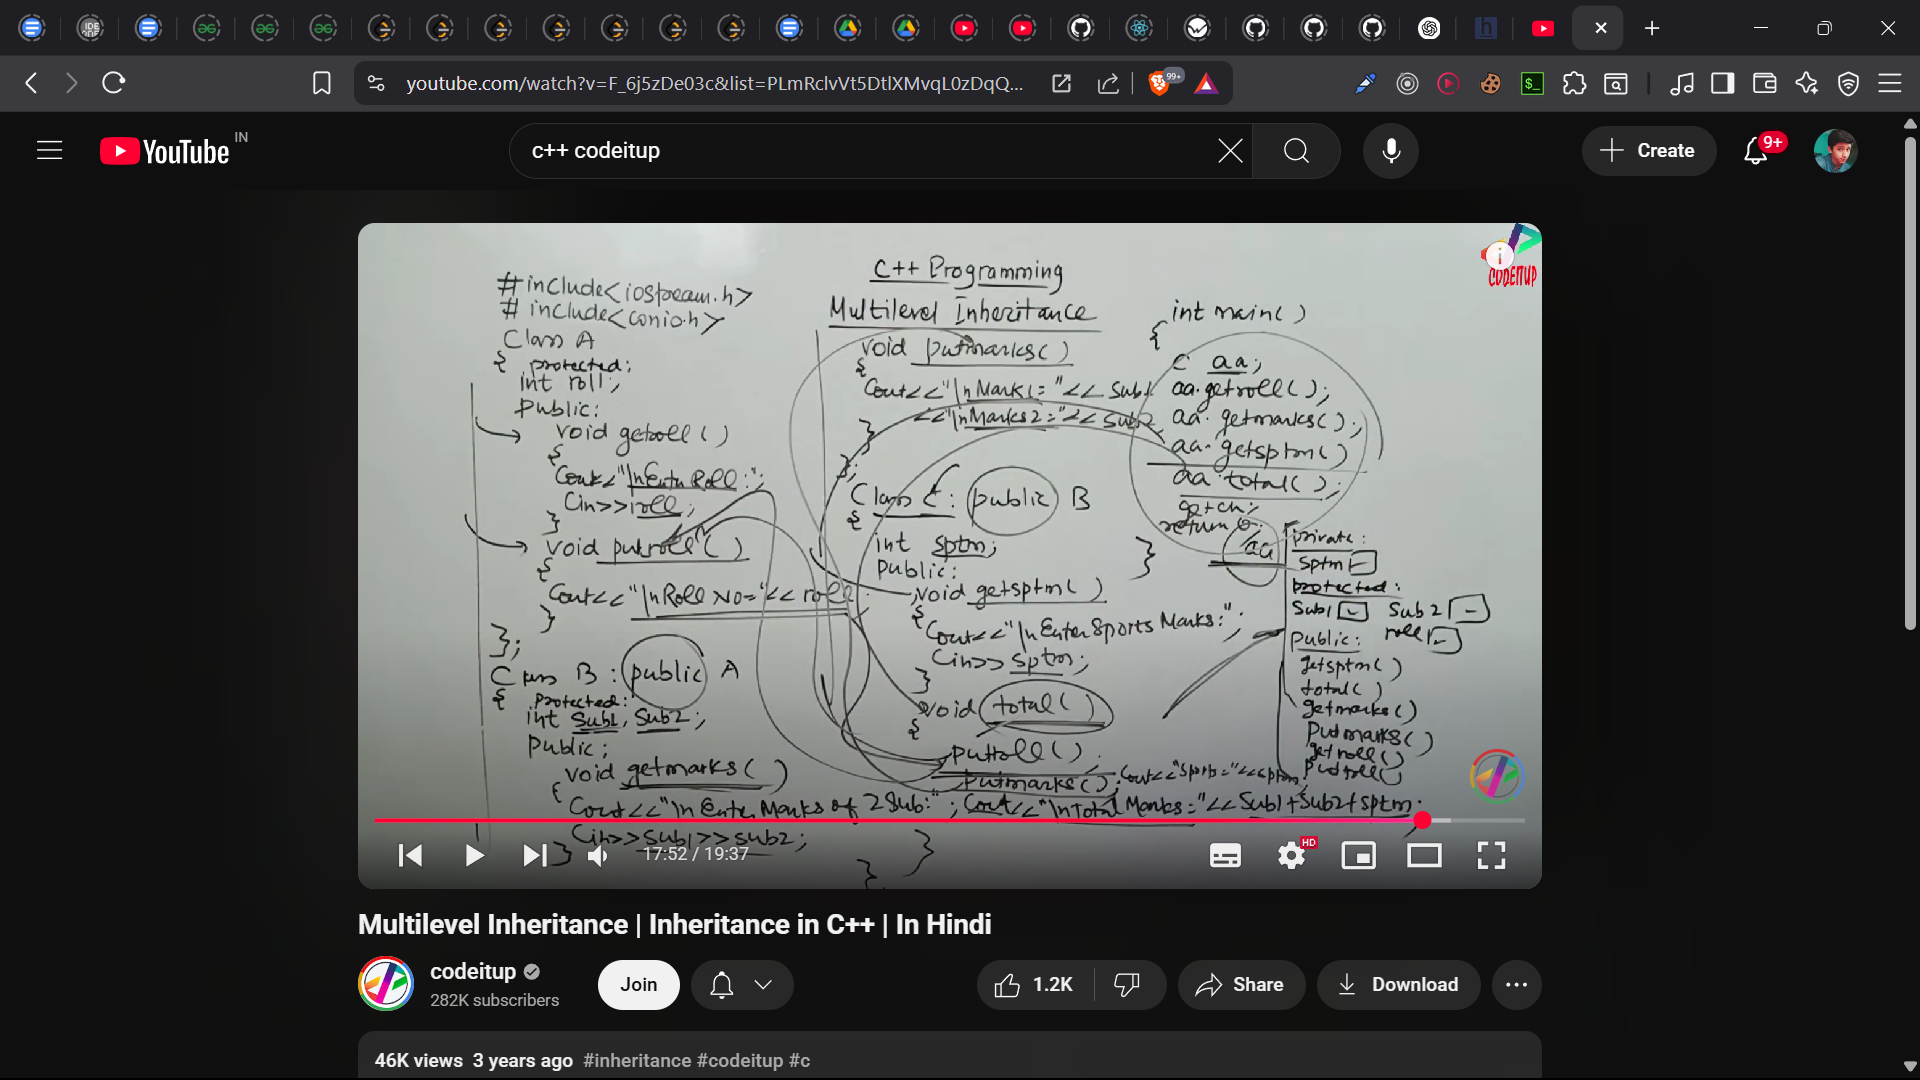 youtube.com/watch?v=F_6j5zDe03c&list=PLmRclvVt5DtlXMvqL0zDqQ...
99+
YouTube IN
c++ codeitup
Create
9+
CODEITUP
C++ Programming
Multilevel Inheritance
#include<iostream.h>
# include<conio.h>
Class A
{ protected:
int roll;
Public:
void getroll()
{
Cout<<"\nEnter Roll:";
Cin>>roll;
}
void putroll()
{
Cout<<"\nRoll No="<<roll;
}
};
Class B : public A
{ protected:
int Sub1, Sub2;
Public:
void getmarks()
{
Cout<<"\n Enter Marks of 2 Sub:";
Cin>>Sub1>>sub2;
}
void putmarks()
{
Cout<<"\n Marks1="<< Sub1
<<"\nMarks2="<< Sub2
}
};
Class C: public B
{
int sptm;
Public:
void getsptm()
{
Cout<<"\nEnter Sports Marks:";
Cin>> sptm;
}
void total()
{
putroll();
Putmarks(); Cout<<"Sports="<<sptm;
Cout<<"\nTotal Marks="<<Sub1+Sub2+sptm;
}
};
int main()
{
C aa;
aa.getroll();
aa.getmarks();
aa.getsptm()
aa.total();
getch;
return 0;
}
aa
private:
Sptm
protected:
Sub1 Sub2
roll
Public:
getsptm()
total()
getmarks()
Putmarks()
getroll()
putroll()
17:52 / 19:37
HD
Multilevel Inheritance | Inheritance in C++ | In Hindi
codeitup
282K subscribers
Join
1.2K
Share
Download
46K views 3 years ago #inheritance #codeitup #c